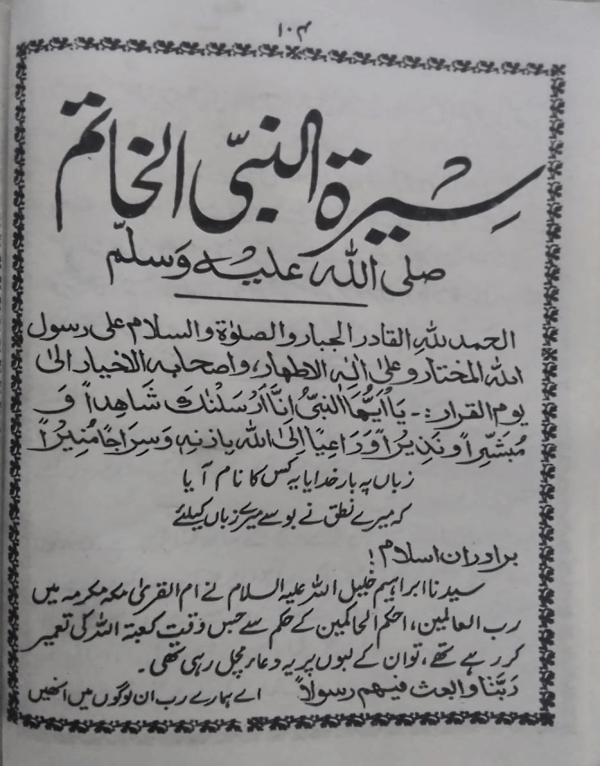 ۱۰۴
سیرة النبیّ الخاتم
صلی اللہ علیہ وسلّم
الحمد للہِ القادر الجبار والصلوٰة والسلام علیٰ رسول
اللہ المختار و علیٰ اٰلہِ الاطھار، واصحابہ الاخیار الیٰ
یوم القرار:۔ یٰۤاَیُّھَا النَّبِیُّ اِنَّاۤ اَرْسَلْنٰکَ شَاھِداً وَّ
مُبَشِّراً وَّ نَذِیْراً وَّدَاعِیاً اِلَی اللہِ بِاِذْنِہٖ وَسِرَاجًا مُّنِیْراً
زباں پہ بار خدایا یہ کس کا نام آیا
کہ میرے نطق نے بوسے میری زباں کیلئے
برادران اسلام!
سیدنا ابراہیم خلیل اللہ علیہ السلام نے ام القریٰ مکہ مکرمہ میں
رب العالمین، احکم الحاکمین کے حکم سے جس وقت کعبۃ اللہ کی تعمیر
کر رہے تھے، تو ان کے لبوں پر یہ دعاء مچل رہی تھی۔
رَبَّنَا وَابعث فیھم رسولاً اے ہمارے رب ان لوگوں میں انھیں